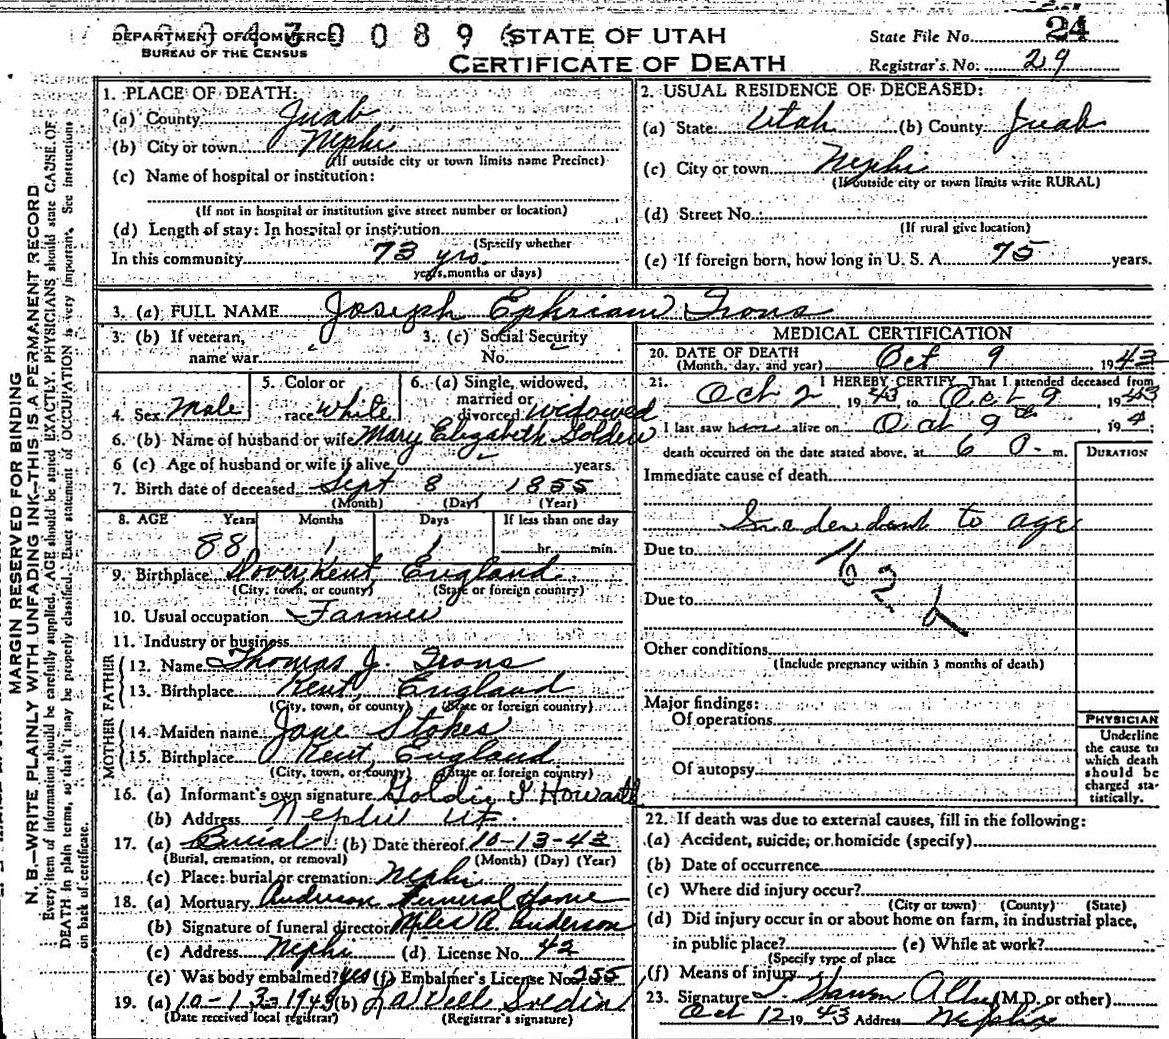 DEPARTMENT OF COMMERCE
BUREAU OF THE CENSUS
STATE OF UTAH
CERTIFICATE OF DEATH
State File No. 24
Registrar's No. 29
MARGIN RESERVED FOR BINDING
N. B.—WRITE PLAINLY WITH UNFADING INK—THIS IS A PERMANENT RECORD
Every item of information should be carefully supplied. AGE should be stated EXACTLY. PHYSICIANS should state CAUSE OF
DEATH in plain terms, so that it may be properly classified. Exact statement of OCCUPATION is very important. See instructions
on back of certificate.
1. PLACE OF DEATH:
(a) County Juab
(b) City or town Nephi
(If outside city or town limits name Precinct)
(c) Name of hospital or institution:
(If not in hospital or institution give street number or location)
(d) Length of stay: In hospital or institution
(Specify whether
In this community 73 yrs.
years, months or days)
2. USUAL RESIDENCE OF DECEASED:
(a) State Utah (b) County Juab
(c) City or town Nephi
(If outside city or town limits write RURAL)
(d) Street No.
(If rural give location)
(e) If foreign born, how long in U. S. A. 75 years.
3. (a) FULL NAME Joseph Ephriam Irons
3. (b) If veteran, name war
3. (c) Social Security No.
4. Sex Male
5. Color or race White
6. (a) Single, widowed, married or divorced Widowed
6. (b) Name of husband or wife Mary Elizabeth Golden
6 (c) Age of husband or wife if alive years.
7. Birth date of deceased Sept 8 1855
(Month) (Day) (Year)
8. AGE Years Months Days If less than one day
88 1 1 hr. min.
9. Birthplace Dover, Kent, England
(City, town, or county) (State or foreign country)
10. Usual occupation Farmer
11. Industry or business
FATHER
12. Name Thomas J. Irons
13. Birthplace Kent, England
(City, town, or county) (State or foreign country)
MOTHER
14. Maiden name Jane Stokes
15. Birthplace Kent, England
(City, town, or county) (State or foreign country)
16. (a) Informant's own signature Goldie I Howarth
(b) Address Nephi Ut.
17. (a) Burial (b) Date thereof 10-13-43
(Burial, cremation, or removal) (Month) (Day) (Year)
(c) Place: burial or cremation Nephi
18. (a) Mortuary Anderson Funeral Home
(b) Signature of funeral director Miles A. Anderson
(c) Address Nephi (d) License No. 42
(e) Was body embalmed? yes (f) Embalmer's License No. 255
19. (a) 10-13-1943 (b) LaVelle
(Date received local registrar) (Registrar's signature)
MEDICAL CERTIFICATION
20. DATE OF DEATH Oct 9 1943
(Month, day, and year)
21. I HEREBY CERTIFY, That I attended deceased from
Oct 2 1943 to Oct 9 1943
I last saw him alive on Oct 9th 194;
death occurred on the date stated above, at 6 m.
DURATION
Immediate cause of death
to age
Due to
162 b
Due to
Other conditions
(Include pregnancy within 3 months of death)
Major findings:
Of operations
Of autopsy
PHYSICIAN
Underline
the cause to
which death
should be
charged sta-
tistically.
22. If death was due to external causes, fill in the following:
(a) Accident, suicide, or homicide (specify)
(b) Date of occurrence
(c) Where did injury occur?
(City or town) (County) (State)
(d) Did injury occur in or about home on farm, in industrial place,
in public place? (e) While at work?
(Specify type of place
(f) Means of injury
23. Signature (M.D. or other)
Oct 12 1943 Address Nephi